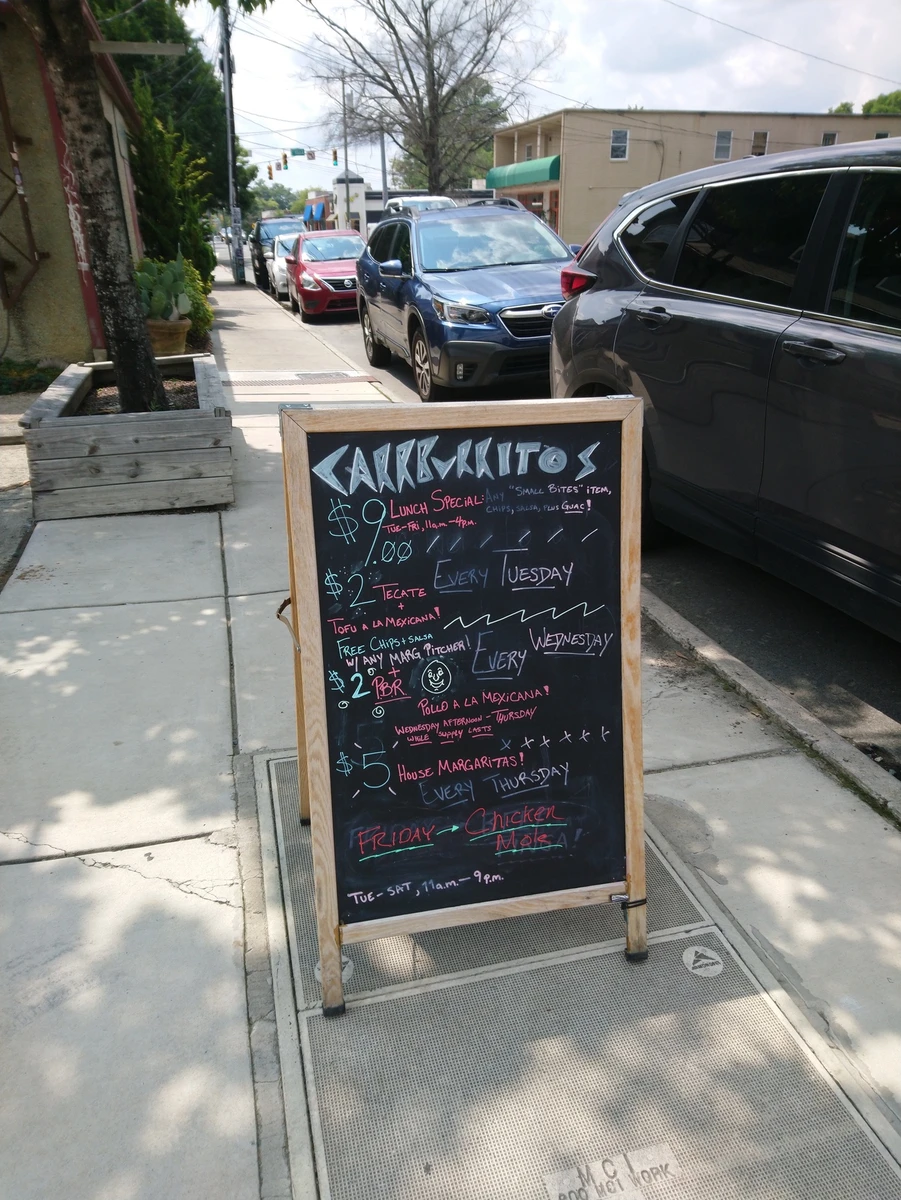 CARRBURRITOS
$9.00 LUNCH SPECIAL: ANY "SMALL BITES" ITEM,
TUE-FRI, 11a.m.-4p.m. CHIPS, SALSA, PLUS GUAC!
$2 TECATE EVERY TUESDAY
+
TOFU A LA MEXICANA!
FREE CHIPS + SALSA
W/ ANY MARG PITCHER! EVERY WEDNESDAY
+
$2 PBR
POLLO A LA MEXICANA!
WEDNESDAY AFTERNOON - THURSDAY
WHILE SUPPLY LASTS
$5 HOUSE MARGARITAS!
EVERY THURSDAY
FRIDAY → CHICKEN
MOLE
TUE-SAT, 11a.m.-9p.m.
M C I